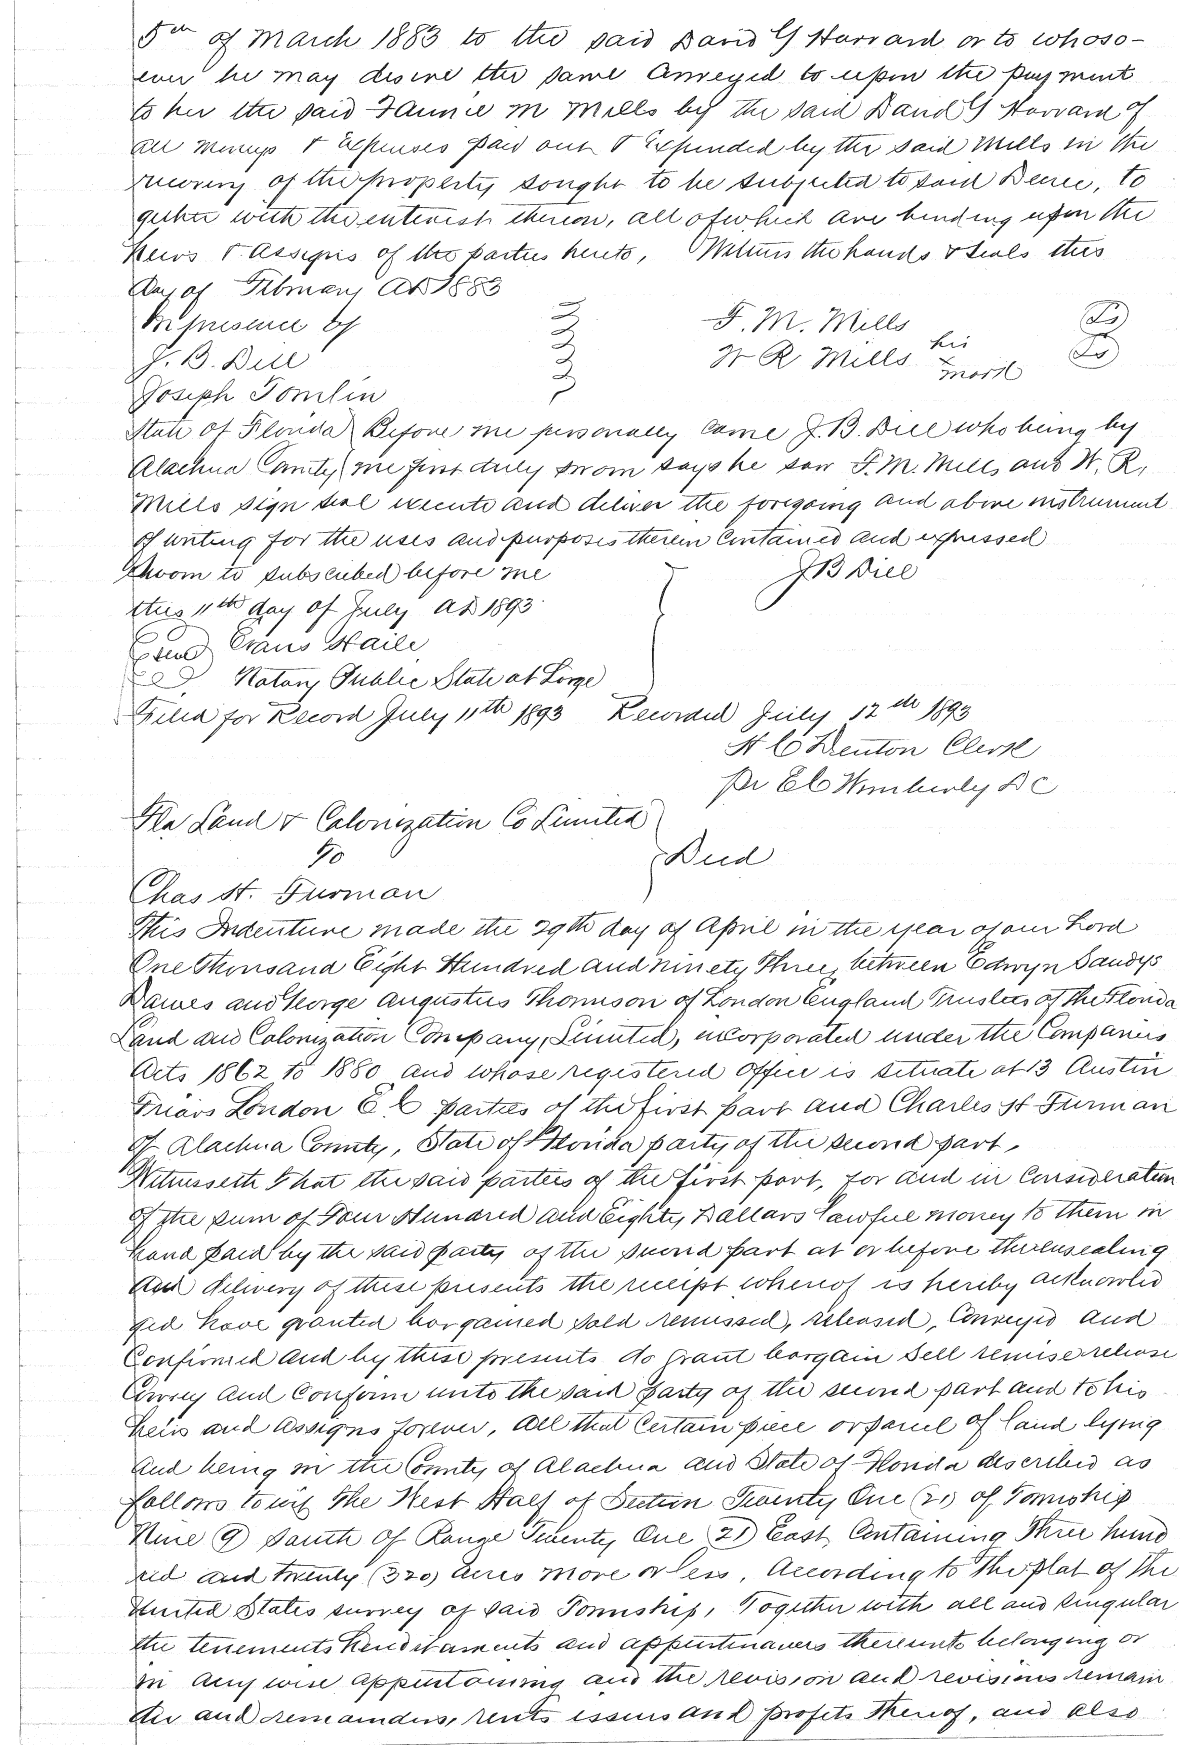 5th of March 1883 to the said David G Harvard or to whoso-
ever he may desire the same Conveyed to upon the payment
to her the said Fannie M Mills by the said David G Harvard of
all moneys & Expenses paid out & Expended by the said Mills in the
recovery of the property sought to be subjected to said Decree, to
gether with the interest thereon, all of which are binding upon the
heirs & assigns of the parties hereto, Witness the hands & seals this
day of February AD 1883
In presence of
J. B. Dell F. M. Mills Ls
Joseph Tomlin W R Mills his mark Ls
State of Florida Before me personally came J. B. Dell who being by
Alachua County me first duly sworn says he saw F. M. Mills and W. R.
Mills sign seal execute and deliver the foregoing and above instrument
of writing for the uses and purposes therein contained and expressed
Sworn to subscribed before me J B Dell
this 11th day of July AD 1893
Seal Evans Haile
Notary Public State at Large
Filed for Record July 11th 1893 Recorded July 12th 1893
H C Denton Clerk
Pr E C Wimberly D C
Fla Land & Colonization Co Limited
To Deed
Chas H. Furman
This Indenture made the 29th day of April in the year of our Lord
One Thousand Eight Hundred and ninety Three, between Edwyn Sandys
Dawes and George Augustus Thomson of London England Trustees of the Florida
Land and Colonization Company, Limited, incorporated under the Companies
Acts 1862 to 1880 and whose registered office is situate at 13 Austin
Friars London E C parties of the first part and Charles H Furman
of Alachua County, State of Florida party of the second part,
Witnesseth That the said parties of the first part, for and in Consideration
of the sum of Four Hundred and Eighty Dollars lawful money to them in
hand paid by the said party of the second part at or before the ensealing
and delivery of these presents the receipt whereof is hereby acknowled
ged have granted bargained sold remissed, released, Conveyed and
Confirmed and by these presents do grant bargain sell remise release
Convey and Confirm unto the said party of the second part and to his
heirs and assigns forever, all that Certain piece or parcel of land lying
and being in the County of Alachua and State of Florida described as
follows to wit The West Half of Section Twenty One (21) of Township
Nine (9) South of Range Twenty One (21) East Containing Three hund
red and twenty (320) acres more or less, According to the plat of the
United States survey of said Township, Together with all and singular
the tenements hereditaments and appurtenances thereunto belonging or
in any wise appertaining and the revision and revisions remain
der and remainders, rents issues and profits thereof, and also